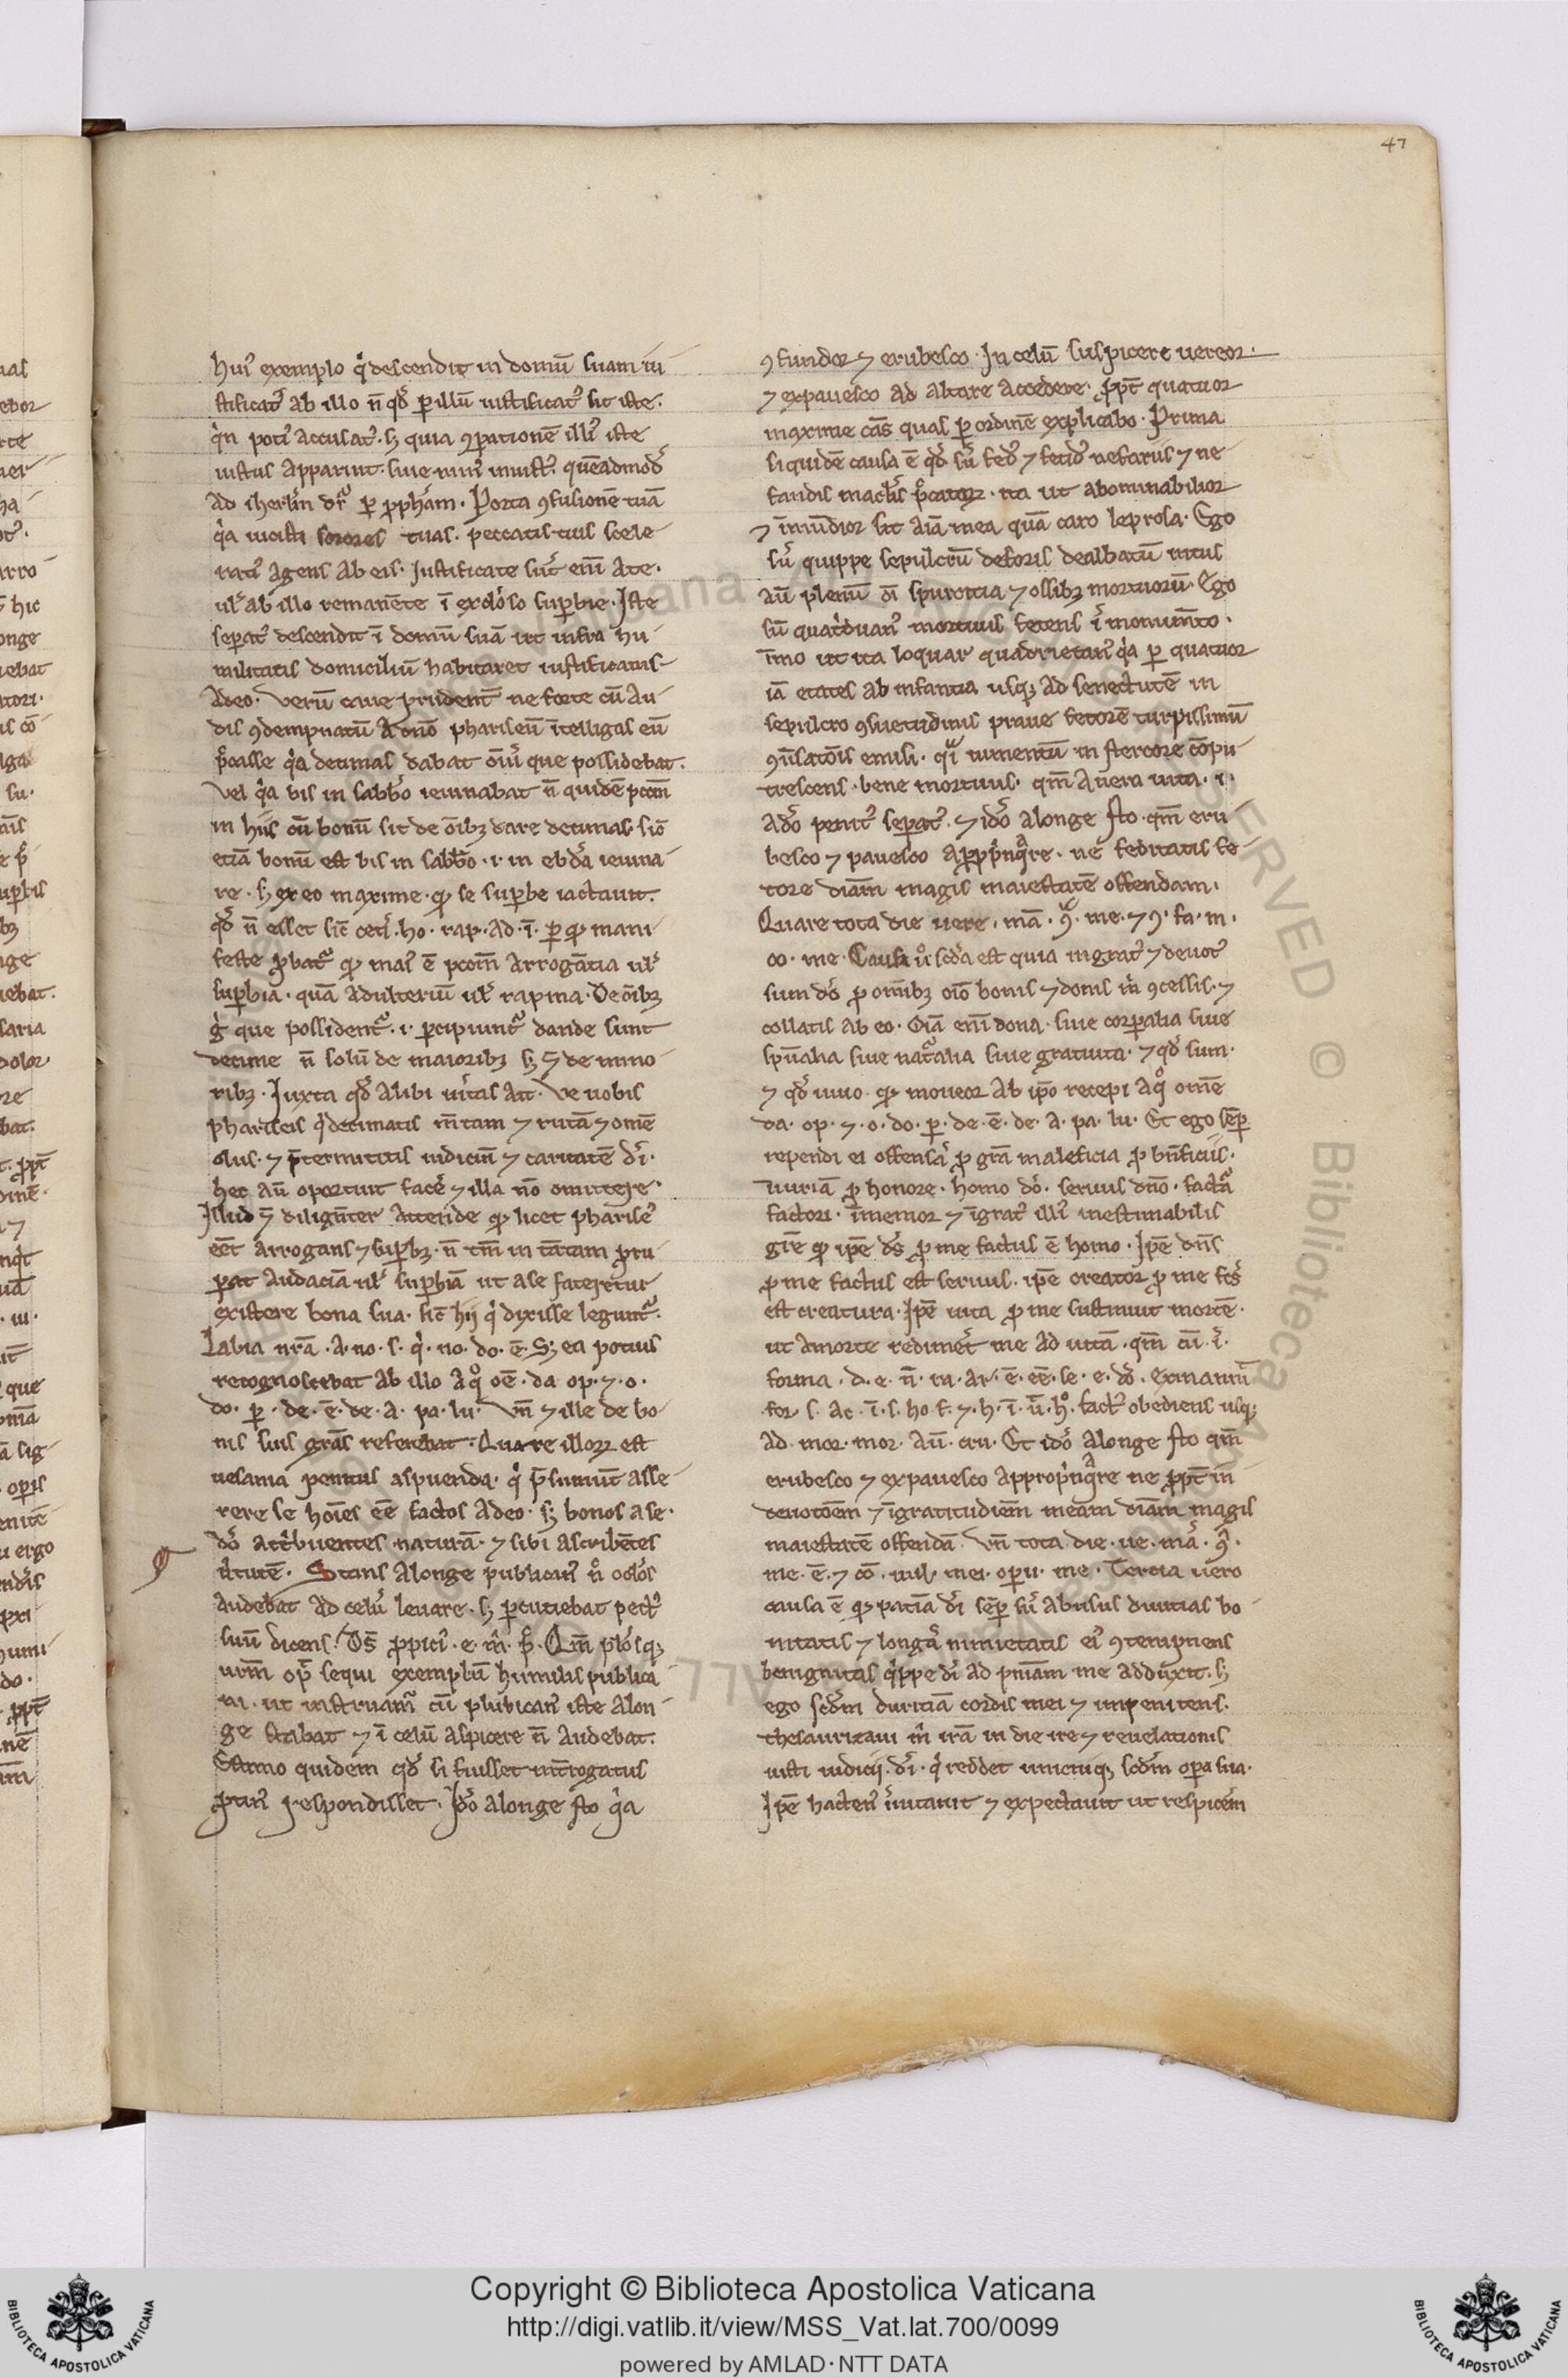 47
huiꝰ exemplo qͥ descendit in domū suam iu
stificatꝰ ab illo n̄ qd̓ ꝑ illū iustificatꝰ sit iste.
qͥn potiꝰ accusatꝰ. sꝫ quia ꝯꝑationē illiꝰ iste
iustus apparuit. siue minꝰ iniustꝰ. quēadmod̓
ad iherl̓m dr̄ ꝑ ꝓph̄am. Porta ꝯfusionē tuā
qͥa uicisti sorores tuas. peccatis tuis scele
ratiꝰ agens ab eis. Iustificate sūt eni̅ a te.
ul̓ ab illo remanēte ī suꝑbie. Iste
seꝑatꝰ descendit ī domū suā ut infra hu
militatis domiciliū habitaret iustificatus
a deo. Verū caue prudent̓ ne forte cū au
dis ꝯdempnatū a dn̄o phariseū ītelligas eū
p̄casse qͥa decimas dabat om̄iū que possidebat.
Vel qͥa bis in sabb̓o ieiunabat n̄ quidē pccm̄
in hiis cū bonū sit de oībꝫ dare decimas. sic̄
etiā bonū est bis in sabb̓o .i. in ebd̓a ieiuna
re. sꝫ ex eo maxime. qꝫ se suꝑbe iactauit.
qd̓ n̄ esset sic̄ cetī. ho. rap. ad. ī. ꝑ qꝫ mani
feste ꝓbatᷣ qꝫ maiꝰ ē pccm̄ arrogātia ul̓
suꝑbia. quā adulteriū ul̓ rapina. De oībꝫ
gͥ que possidentᷣ .i. ꝑcipiuntᷣ dande sunt
decime n̄ solū de maioribꝫ sꝫ ⁊ de mino
ribꝫ. Iuxta qd̓ alibi uītas ait. Ve uobis
phariseis qͥ decimatis m̄tam ⁊ rutā ⁊ omē
olus. ⁊ p̄termittitis iudiciū ⁊ caritatē di̓.
hec aū oportuit facē ⁊ illa nō omittere.
Illud ⁊ diligen̄ter attende qꝫ licet phariseꝰ
eēt arrogans ⁊ suꝑbꝰ. n̄ tm̄ in tātam ꝓru
ꝑat audaciā ul̓ suꝑbiā ut a se fateretur
existere bona sua. sic̄ hij qͥ dixisse leguntᷣ.
Labia nr̄a .a. no. s. qͥ. no. do. ē. Sꝫ ea potius
recognoscebat ab illo a qͦ oē. da. op. ⁊. o.
do. ꝑ. de. ē. de. a. pa. lu. Vn̄ ⁊ ille de bo
nis suis grās referebat. Quare illoꝝ est
uesania penitus aspuenda. qͥ p̄sumūt asse
rere se hoīes eē factos a deo. sꝫ bonos a se.
dō attͥbuentes naturā. ⁊ sibi ascribētes
uͥtutē. Stans a longe publicanꝰ n̄ oclōs
audebat ad celū leuare. sꝫ ꝑcutiebat pectꝰ
suū dicens. Ds̄ ꝓpiciꝰ. e. m̄. p̄. Qm̄
urm̄ op̄ sequi exemplū humilis publica
ni. ut instruamᷣ cū publicanꝰ iste a lon
ge stabat ⁊ ī celū aspicere n̄ audebat.
Estimo quidem qd̓ si fuisset int̓rogatus
ꝓtinꝰ respondisset. Id̓o a longe sto qͥa
ꝯfundor ⁊ erubesco. In celū suspicere uereor.
⁊ expauesco ad altare accedere. ꝓpt̓ quatuor
maxime cās quas ꝑ ordinē explicabo. Prima
siquidē causa ē qd̓ sū fedꝰ ⁊ fetidꝰ nefariis ⁊ ne
fandis mac̓lis p̄catoꝝ. ita ut abominabilior
⁊ īmūdior sit aīa mea quā caro leprosa. Ego
sū quippe sepulcrū deforis dealbatū intus
aū plenū oī spurcitia ⁊ ossibꝫ mortuorū. Ego
sū quatͥduanꝰ mortuus fetens ī monumēto.
īmo ut ita loquar quadrietanꝰ qͥa ꝑ quatuor
iā etates ab infantia usqꝫ ad senectutē in
sepulcro ꝯsuetudinis praue fetorē turpissimū
emisi. qͣi iumentū in stercore cōpu
trescens. bene mortuus. qm̄ a uera uita .i.
a d̓o penitꝰ seꝑatꝰ. ⁊ id̓o a longe sto. qm̄ eru
besco ⁊ pauesco aꝓp̄inqͣre. ne feditatis fe
tore diuīam magis maiestatē offendam.
Quare tota die uere. mā. ꝯ. me. ⁊ ꝯ. fa. m.
co. me. Causa ū sc̄da est quia ingratꝰ ⁊ deuotꝰ
sum dō ꝓ omībꝫ oīo bonis ⁊ donis m̄ ꝯcessis. ⁊
collatis ab eo. Oīa eni̅ dona. siue corꝑalia siue
spūalia siue natᷣalia siue gratuita. ⁊ qd̓ sum.
⁊ qd̓ uiuo. qꝫ moueor ab ipō recepi a qͦ omē
da. op. ⁊. o. do. ꝑ. de. ē. de. a. pa. lu. Et ego sēꝑ
rependi ei offensā ꝓ grā maleficia ꝓ bn̄ficiis.
iniuriā ꝓ honore. homo dō. seruus dn̄o. factᷣa
factori. īmemor ⁊ īgratꝰ illiꝰ inestimabilis
grē qꝫ ipē ds̄ ꝓ me factus ē homo. Ipē dn̄s
ꝓ me factus est seruus. ipē creator ꝓ me fcs̄
est creatura. Ipē uita ꝓ me sustinuit mortē.
ut a morte redimēt me ad uitā. qm̄ cū. ī.
forma. d. e. n̄. ra. ar. ē. eē. se. e. dō. exinaniuͥ
for. s. ac. ī. s. ho. f. ⁊. h. ī. ū. hͦ. factꝰ obediens usqꝫ
ad. mor. mor. aū. cru. Et id̓o a longe sto qm̄
erubesco ⁊ expauesco appropīnqͣre ne ꝓpt̓ in
deuotōem ⁊ īgratitudiēm meam diuīam magis
maiestatē offendā. Vn̄ tota die. ue. mā. ꝯ.
me. ē. ⁊ cō. uul. mei. oꝑu. me. Tercia uero
causa ē qꝫ patīa di̓ sēꝑ sū abusus diuitias bo
nitatis ⁊ longānimietatis eiꝰ ꝯtempnens
benignitas qͥppe di̓ ad pn̄iam me adduxit. sꝫ
ego scd̓m duritiā cordis mei ⁊ impenitens.
thesaurizaui m̄ irā in die ire ⁊ reuelationis
iusti iudicij. di̓. qͥ reddet unicuiqꝫ scd̓m oꝑa sua.
Ipē hactenꝰ īuitauit ⁊ expectauit ut respicēm
Copyright © Biblioteca Apostolica Vaticana
http://digi.vatlib.it/view/MSS_Vat.lat.700/0099
powered by AMLAD · NTT DATA